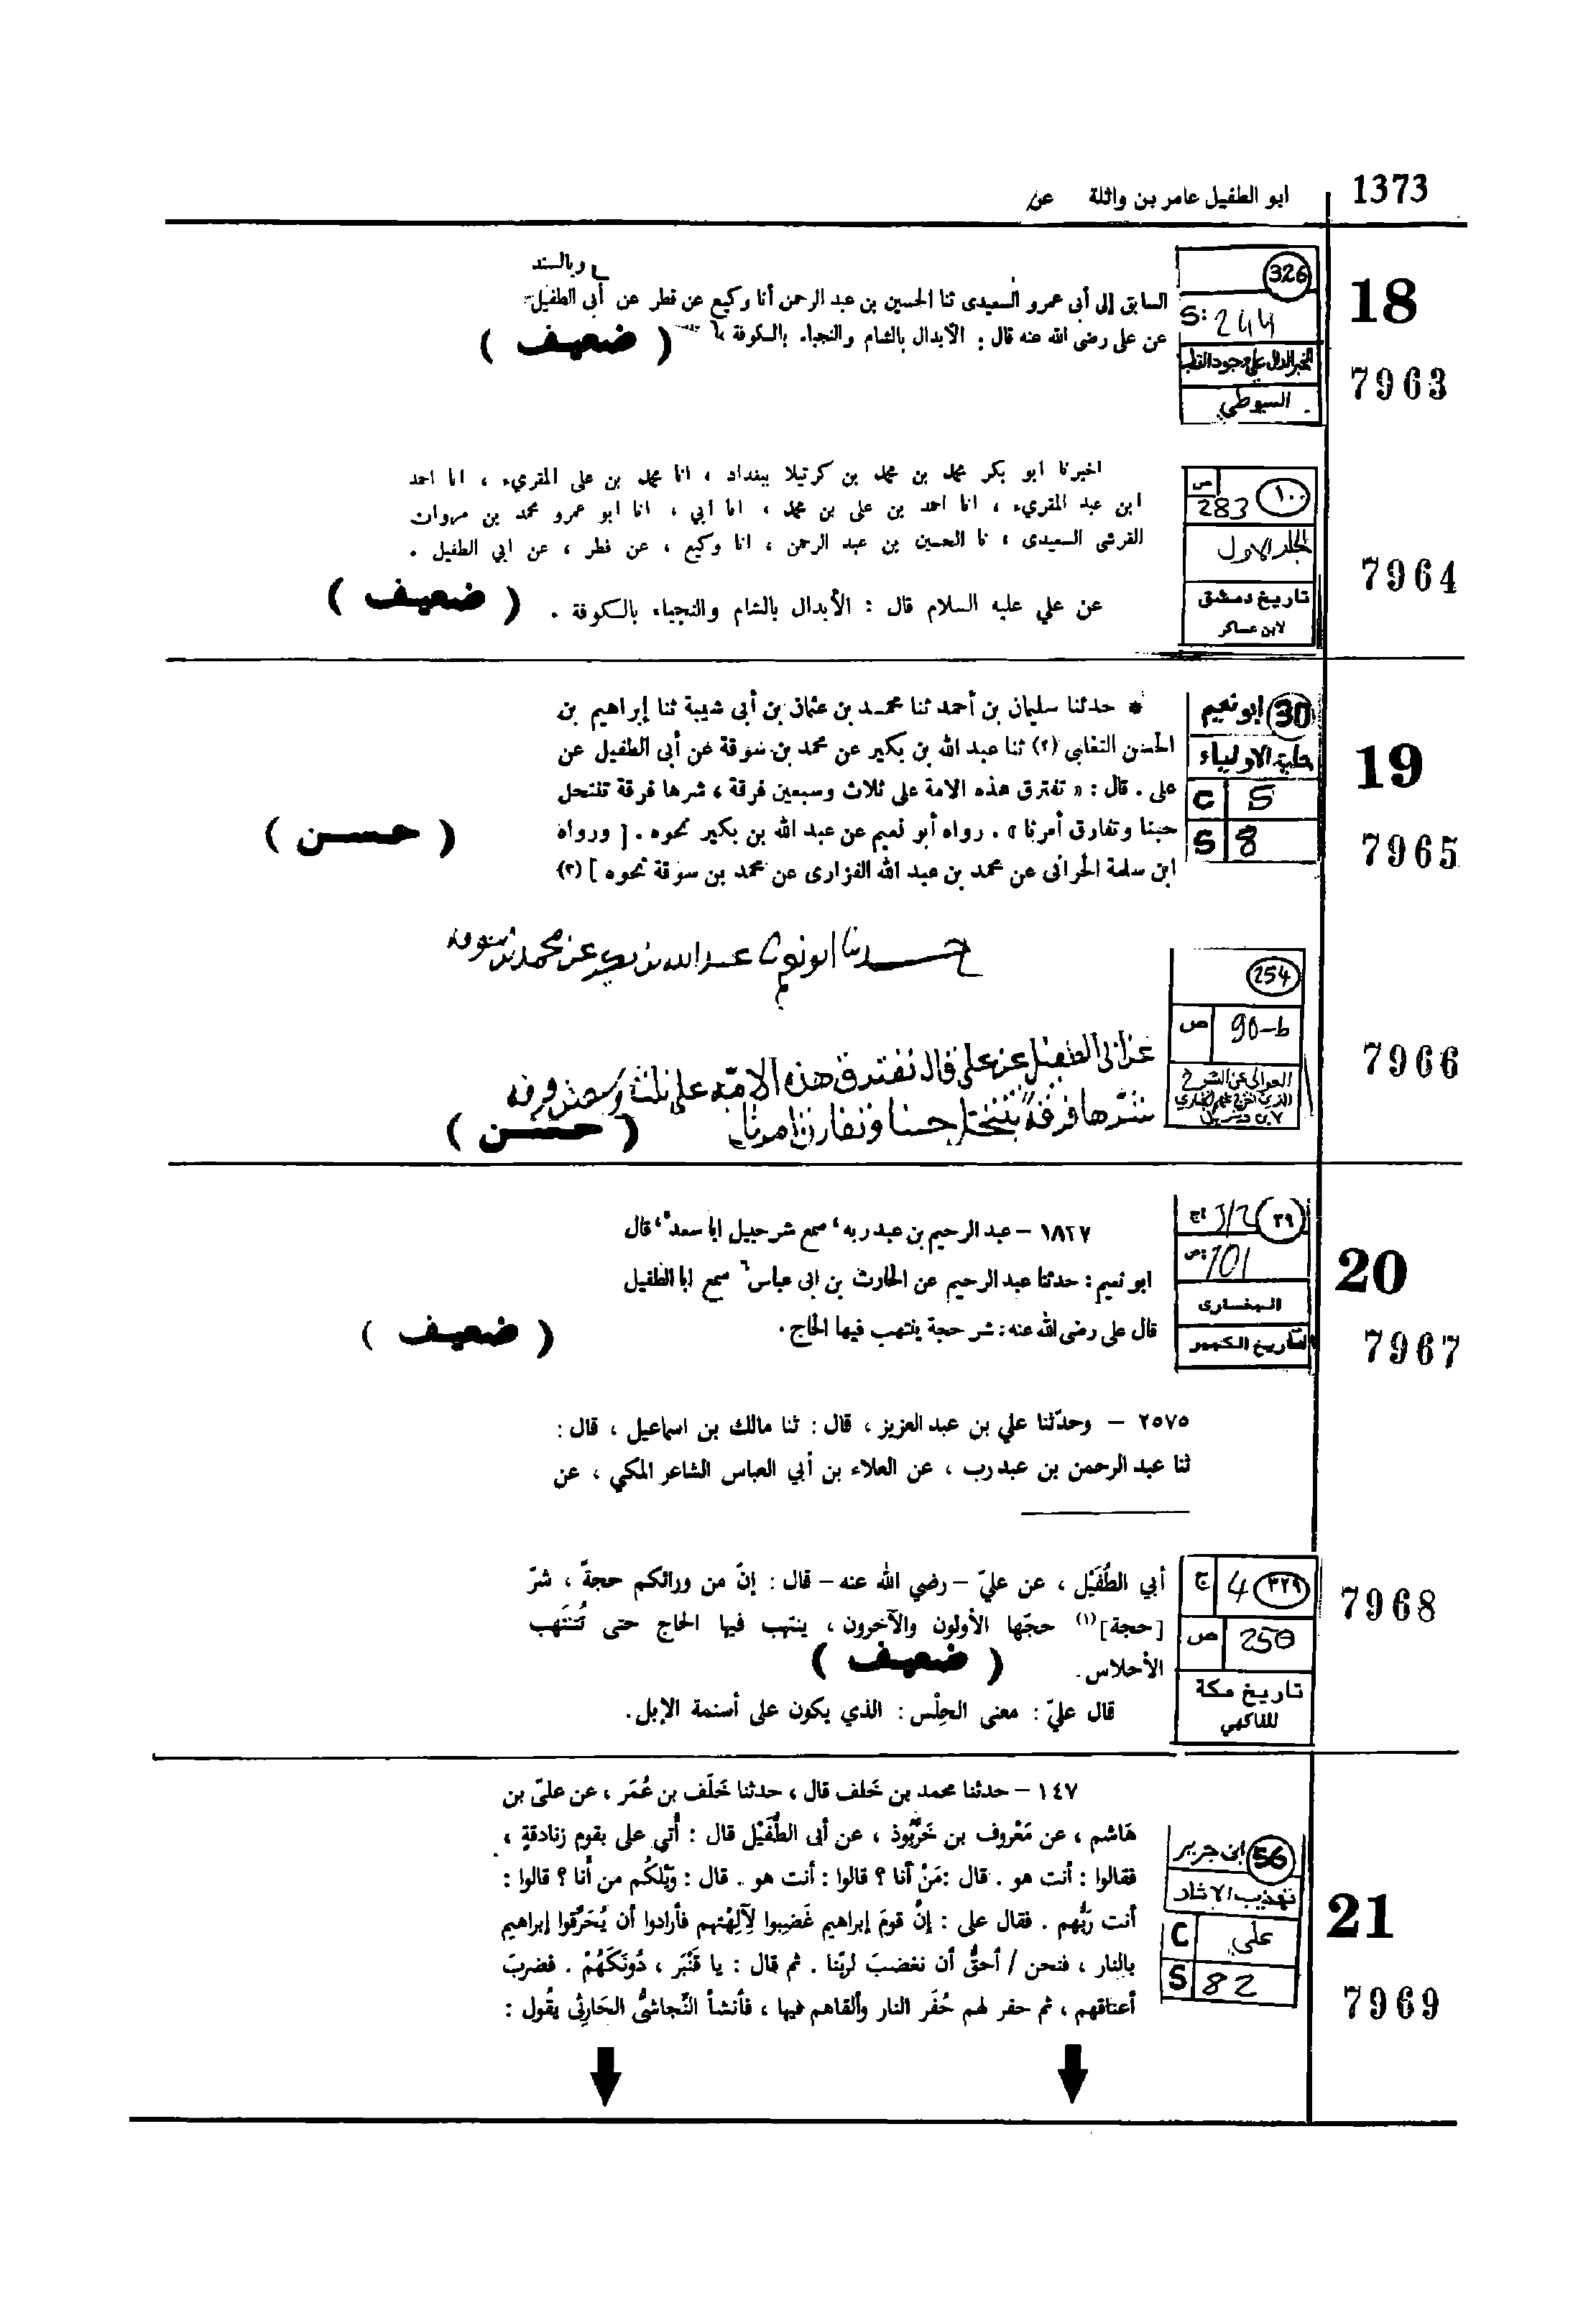 1373
ابو الطفيل عامر بن واثلة عن
18
7963
326
S: 244
الخبر الدال على وجود القطب
السيوطي
وبالسند
السابق إلى أبى عمرو السعيدى ثنا الحسين بن عبد الرحمن أنا وكيع عن فطر عن أبى الطفيل
عن على رضى الله عنه قال : الأبدال بالشام والنجباء بالكوفة
( ضعيف )
7964
١٠٠
ص 283
المجلد الاول
تاريخ دمشق
لابن عساكر
اخبرنا ابو بكر محمد بن محمد بن كرتيلا ببغداد ، انا محمد بن علي المقريء ، انا احمد
ابن عبد المقريء ، انا احمد بن علي بن محمد ، انا أبي ، انا ابو عمرو محمد بن مروان
القرشي السعيدي ، نا الحسين بن عبد الرحمن ، انا وكيع ، عن فطر ، عن ابي الطفيل .
عن علي عليه السلام قال : الأبدال بالشام والنجباء بالكوفة .
( ضعيف )
19
7965
30 ابو نعيم
حلية الاولياء
C 5
S 8
* حدثنا سليمان بن أحمد ثنا محمد بن عثمان بن أبى شيبة ثنا إبراهيم بن
الحسن التغلبي (٢) ثنا عبد الله بن بكير عن محمد بن سوقة عن أبى الطفيل عن
على . قال : « تفترق هذه الامة على ثلاث وسبعين فرقة ، شرها فرقة تنتحل
حبنا وتفارق أمرنا » . رواه أبو نعيم عن عبد الله بن بكير نحوه . [ ورواه
ابن سلمة الحرانى عن محمد بن عبد الله الفزارى عن محمد بن سوقة نحوه ] (٣)
( حسن )
7966
254
ص 90-b
حدثنا ابو نعيم ثنا عبد الله بن بكير عن محمد بن سوقه
عن ابي الطفيل عن علي قال تفترق هذه الامة على ثلث وسبعين فرقه
شرها فرقة تنتحل حبنا وتفارق امرنا
( حسن )
20
7967
٣٩ ج 3/2
ص: 101
البخارى
التاريخ الكبير
١٨٢٧ – عبد الرحيم بن عبد ربه ، سمع شرحبيل ابا سعد ، قال
ابو نعيم : حدثنا عبد الرحيم عن الحارث بن ابى عباس سمع ابا الطفيل
قال على رضى الله عنه : شر حجة ينتهب فيها الحاج .
( ضعيف )
٢٥٧٥ – وحدّثنا علي بن عبد العزيز ، قال : ثنا مالك بن اسماعيل ، قال :
ثنا عبد الرحمن بن عبد رب ، عن العلاء بن أبي العباس الشاعر المكي ، عن
7968
٣٢٩ ج 4
ص 250
تاريخ مكة
للفاكهي
أبي الطُّفَيْل ، عن عليّ – رضي الله عنه – قال : إنّ من ورائكم حجةً ، شرّ
[حجة] (١) حجّها الأولون والآخرون ، ينتهب فيها الحاج حتى تُنتَهب
الأحلاس .
( ضعيف )
قال عليّ : معنى الحِلْس : الذي يكون على أسنمة الإبل .
21
7969
56 ابن جرير
تهذيب الاثار
C علي
S 82
١٤٧ – حدثنا محمد بن خَلف قال ، حدثنا خَلَف بن عُمَر ، عن علىّ بن
هَاشم ، عن مَعْروف بن خَرَّبُوذ ، عن أبى الطُّفَيْل قال : أُتي على بقوم زنادقةٍ ،
فقالوا : أنت هو . قال :مَنْ أنا ؟ قالوا : أنت هو . قال : وَيْلكُم من أنا ؟ قالوا :
أنت رَبُّهم . فقال على : إنَّ قومَ إبراهيم غَضِبوا لِآلِهَتهم فأرادوا أن يُحَرِّقوا إبراهيم
بالنار ، فنحن / أحقُّ أن نغضبَ لربّنا . ثم قال : يا قَنْبَر ، دُونَكَهُمْ . فضربَ
أعناقهم ، ثم حفر لهم حُفَر النار وألقاهم فيها ، فأنشأ النّجاشىُّ الحَارِثى يقُول :